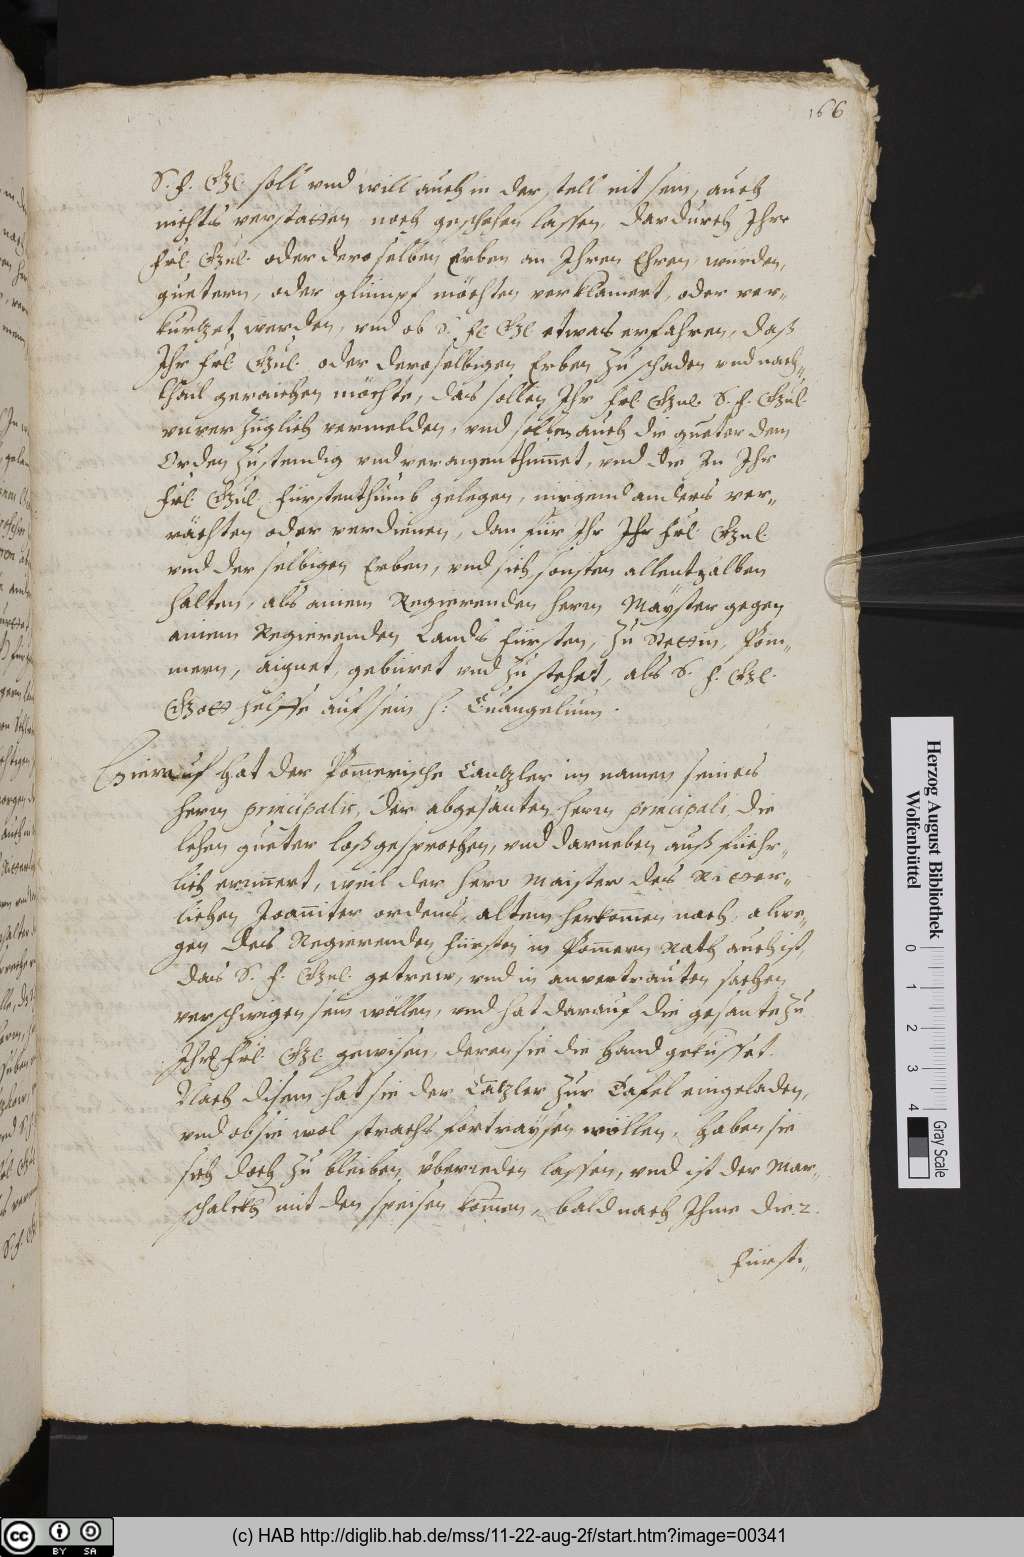 166
S. F. Gl. soll vnd will auch in der stell nit sein, auch
nichts verstatten noch geschehen lassen, dardurch Ihre
Frl. Gnl. oder deroselben Erben an Ihren Ehren, würden,
guetern, oder glümpf möchten verklainert, oder ver-
kurtzet werden, vnd ob S. fl. Gl. etwas erfahren, daß
Ihr Frl. Gnl. oder deroselbigen Erben zu schaden vnd nach-
thail geraichen möchte, das sollen Ihr Frl. Gnl. S. F. Gnl.
vnverzüglich vermelden, vnd sollen auch die gueter dem
Orden zustendig vnd veraigenthumet, vnd die In Ihr
Frl. Gnl. Fürstenthumb gelegen, nirgend anders ver-
rächten oder verdienen, dan für Ihr Ihr Frl. Gnl.
vnd derselbigen Erben, vnd sich sonsten allenthalben
halten, als ainem Regierenden Herrn Mayster gegen
ainem Regierenden Lands Fürsten, zu Stettin, Pom-
mern, aignet, gebüret vnd zustehet, als S. F. Gl.
Gott helffe auf sein H: Euangelium.
Hierauf hat der Pomerische Cantzler im namen seines
herrn principalis, der abgesanten herrn principali, die
lehen gueter loßgesprochen, vnd darneben außfüehr-
lich erinnert, weil der herr Maister des Ritter-
lichen Joanniter ordens, altem herkomen nach, alwe-
gen des Regierenden Fürsten in Pomern Rath auch ist,
das S. F. Gnl. getrew, vnd in anvertrauten sachen
verschwigen sein wöllen, vnd hat darauf die gesante zu
Ihrl. Frl. Gl. gewisen, deren sie die Hand geküsset.
Nach disem hat sie der Catzler zur Tafel eingeladen,
vnd ob sie wol strachs fortraysen wöllen, haben sie
sich doch zu bleiben vberreden lassen, vnd ist der Mar-
schalckh mit den speisen komen, bald nach Ihme die 2.
Fürst-
Herzog August Bibliothek
Wolfenbüttel
0 1 2 3 4
Gray Scale
cc BY SA
(c) HAB http://diglib.hab.de/mss/11-22-aug-2f/start.htm?image=00341